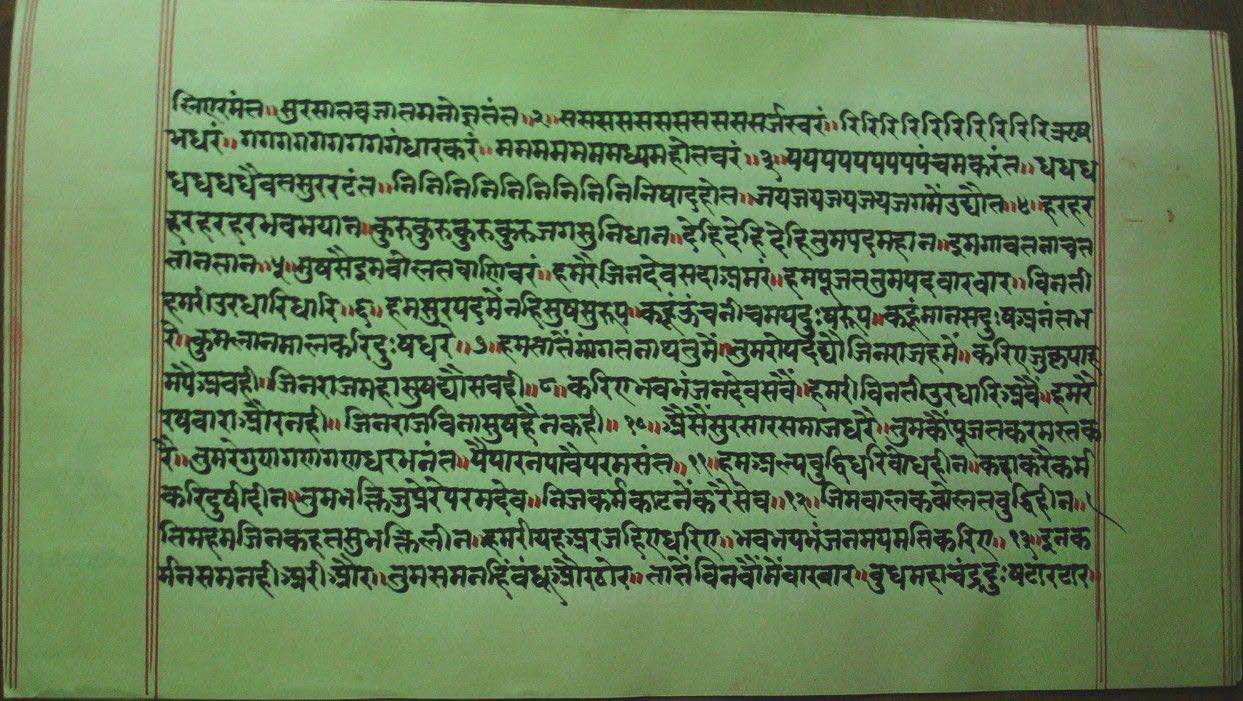 लिएरमंत॥ सुरसालवजालमनोज्ञतंत॥२॥ सससससससससससर्जस्वरं॥ रिरिरिरिरिरिरिरिरिरिऋष
भधरं॥ गगगगगगगगगगंधारकरं॥ ममममममममध्यमहोतवरं॥३॥ पपपपपपपपपपंचमकरंत॥ धधध
धधधधधैवतसुररटंत॥ निनिनिनिनिनिनिनिनिनिनिषादहोत॥ जयजयजयजयजयजगमेंउद्यौत॥४॥ हरहर
हरहरहरहरभवभयान॥ कुरुकुरुकुरुकुरुकुरुजगसुनिधान॥ देहिदेहिदेहिदेहितुमपदमहान॥ इमगावतनाचत
तानतान॥५॥ मुषसैइमबोलतवाणिवरं॥ हमरैजिनदेवसदाअमरं॥ हमपूजततुमपदवारवार॥ विनती
हमरीउरधारिधारि॥६॥ हमसुरपदमेंनहिसुषसुरूप॥ कहूंऊंचनीचमयदुःषरूप॥ कहूंमानसदुःषअनंतभ
रे॥ कुमलानमालकरिदुःषधरे॥७॥ हमतातेंमागतनाथतुमें॥ तुमरोपददेद्यौजिनराजहमें॥ करिएजुकृपाह
मपैअवही॥ जिनराजमहासुषद्यौसवही॥८॥ करिएभवभंजनदेवसवैं॥ हमरीविनतीउरधारिअवै॥ हमरै
रषवाराऔरनही॥ जिनराजविनासुषहैनकही॥१०॥ औसैंसुरसारसमाजधरै॥ तुमकौंपूजतकरमस्तक
रै॥ तुमरेगुणगणगणधरभनंत॥ पैपारनपावैपरमसंत॥११॥ हमअल्पबुद्धिधरिबोधहीन॥ कहाकरैकर्म
करिदुषीदीन॥ तुमभक्तिजुप्रेरेपरमदेव॥ निजकर्मकाटनेंकरैसेव॥१२॥ जिमबालकबोलतबुद्धिहीन॥
तिमहमजिनकहतसुभक्तिलीन॥ हमरीयहअरजहिएधरिए॥ भवभयभंजनमयमतिकरिए॥१३॥ दूनक
र्मनसमनहीअरीऔर॥ तुमसमनहिंबंधूऔरठोर॥ तातेंविनवौंमेंवारबार॥ बुधमहाचंद्रदुःषटारटार॥